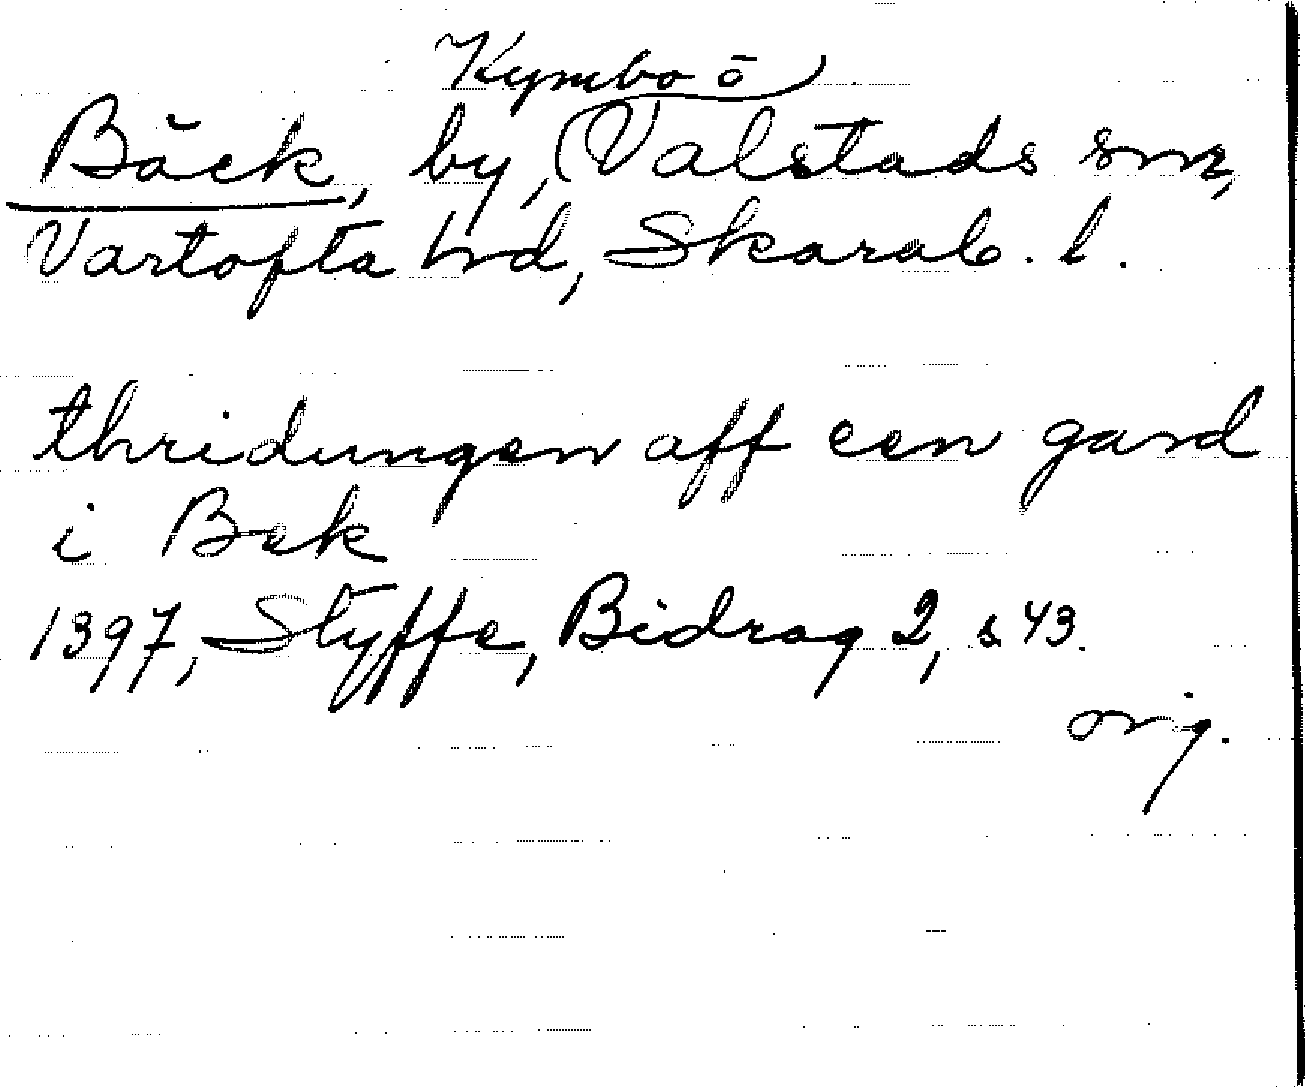 Kymbo ö
Bäck, by, Valstads sn,
Vartofta hd, Skarab. l.
thridungen aff een gard
i Bek
1397, Styffe, Bidrag 2, s 43.
orig.